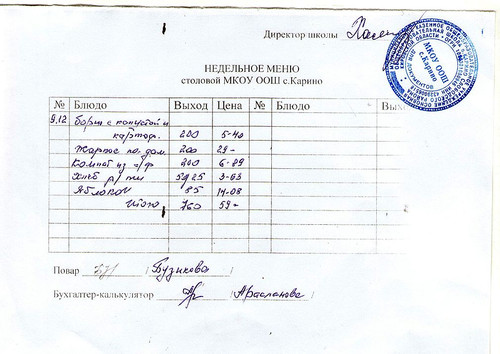 Директор школы
НЕДЕЛЬНОЕ МЕНЮ
столовой МКОУ ООШ с.Карино
№ Блюдо Выход Цена № Блюдо Вы
9.12 Борщ с капустой и
картоф. 200 5-40
Жаркое по дом. 200 29-
Компот из с/ф 200 6-89
Хлеб р/пш 50/25 3-63
Яблоко 85 14-08
Итого 760 59-
Повар / Бузикова /
Бухгалтер-калькулятор / Арасланова /
МКОУ ООШ
с.Карино